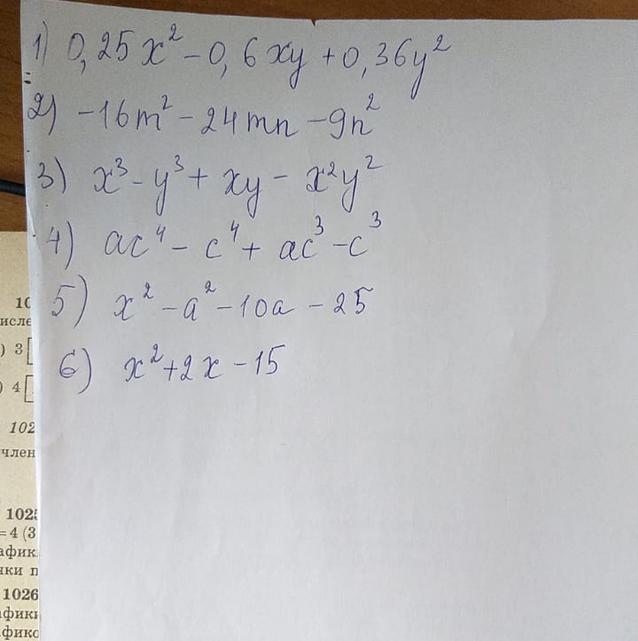 1) 0,25x² - 0,6xy + 0,36y²
2) -16m² - 24mn - 9n²
3) x³ - y³ + xy - x²y²
4) ac⁴ - c⁴ + ac³ - c³
5) x² - a² - 10a - 25
6) x² + 2x - 15
10
исле
) 3
) 4
102
член
1025
=4 (3
афик
чки п
1026
афики
фико